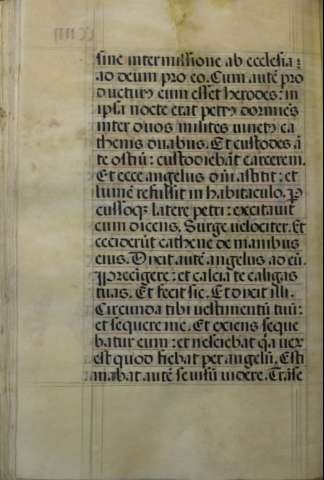 sine intermissione ab ecclesia :
ad deum pro eo. Cum autẽ pro
ducturꝰ eum esset herodes : in
ipsa nocte erat petrꝰ dormiẽs
inter duos milites uinctꝰ ca
thenis duabus. Et custodes ã
te ostiũ : custodiebãt carcerem.
Et ecce angelus dñi astitit : et
lumẽ refulsit in habitaculo. P
cussoqꝫ latere petri : excitauit
eum dicens. Surge uelociter. Et
ceciderũt cathene de manibus
eius. Dixit autẽ angelus ad eũ.
Precĩgere : et calcia te caligas
tuas. Et fecit sic. Et dixit illi.
Circũda tibi uestimentũ tuũ :
et sequere me. Et exiens seque
batur eum : et nesciebat qꝛa uerũ
est quod fiebat per angelũ. Esti
mabat autẽ se uisũ uidere. Trãse